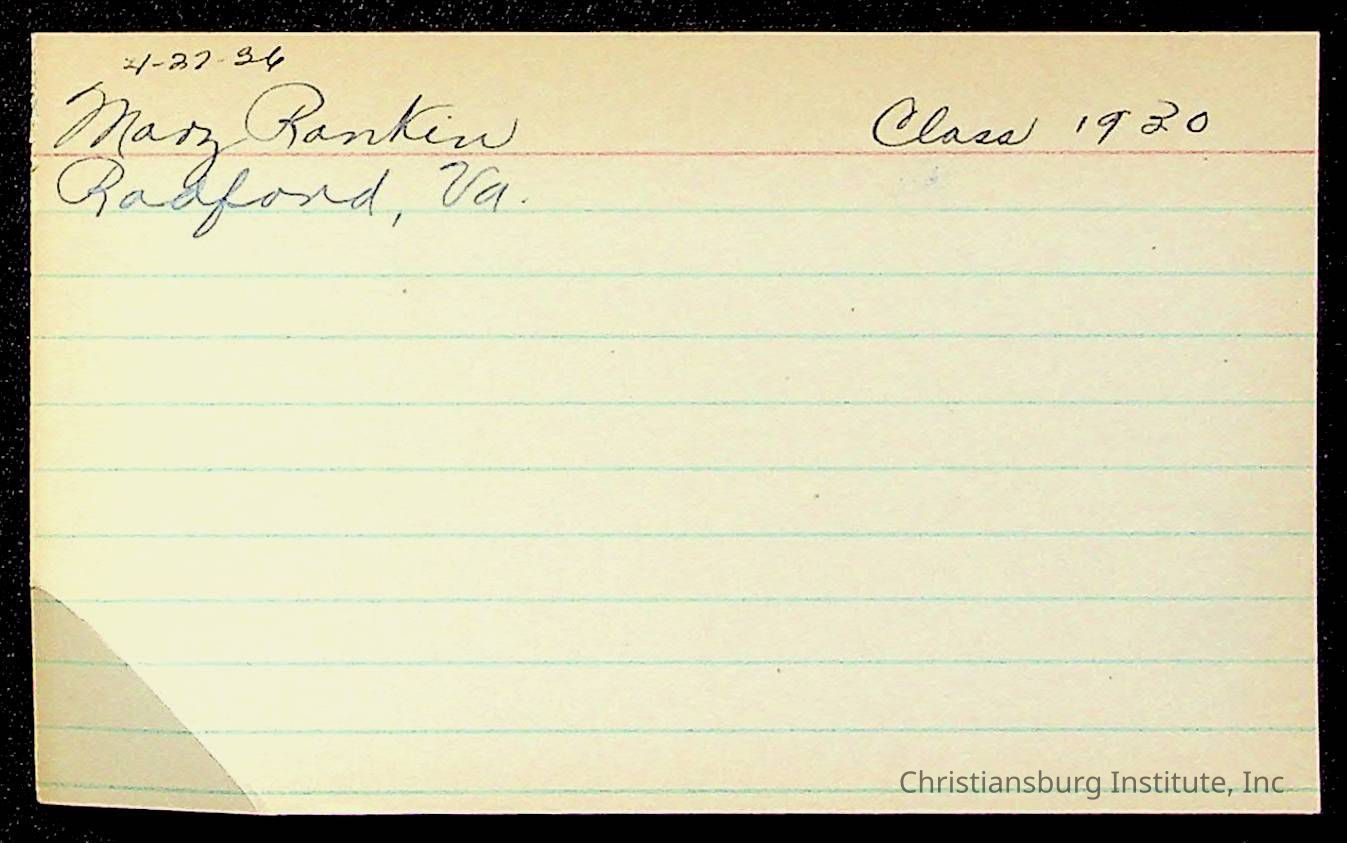 4-27-36
Mary Rankin Class 1930
Radford, Va.
Christiansburg Institute, Inc